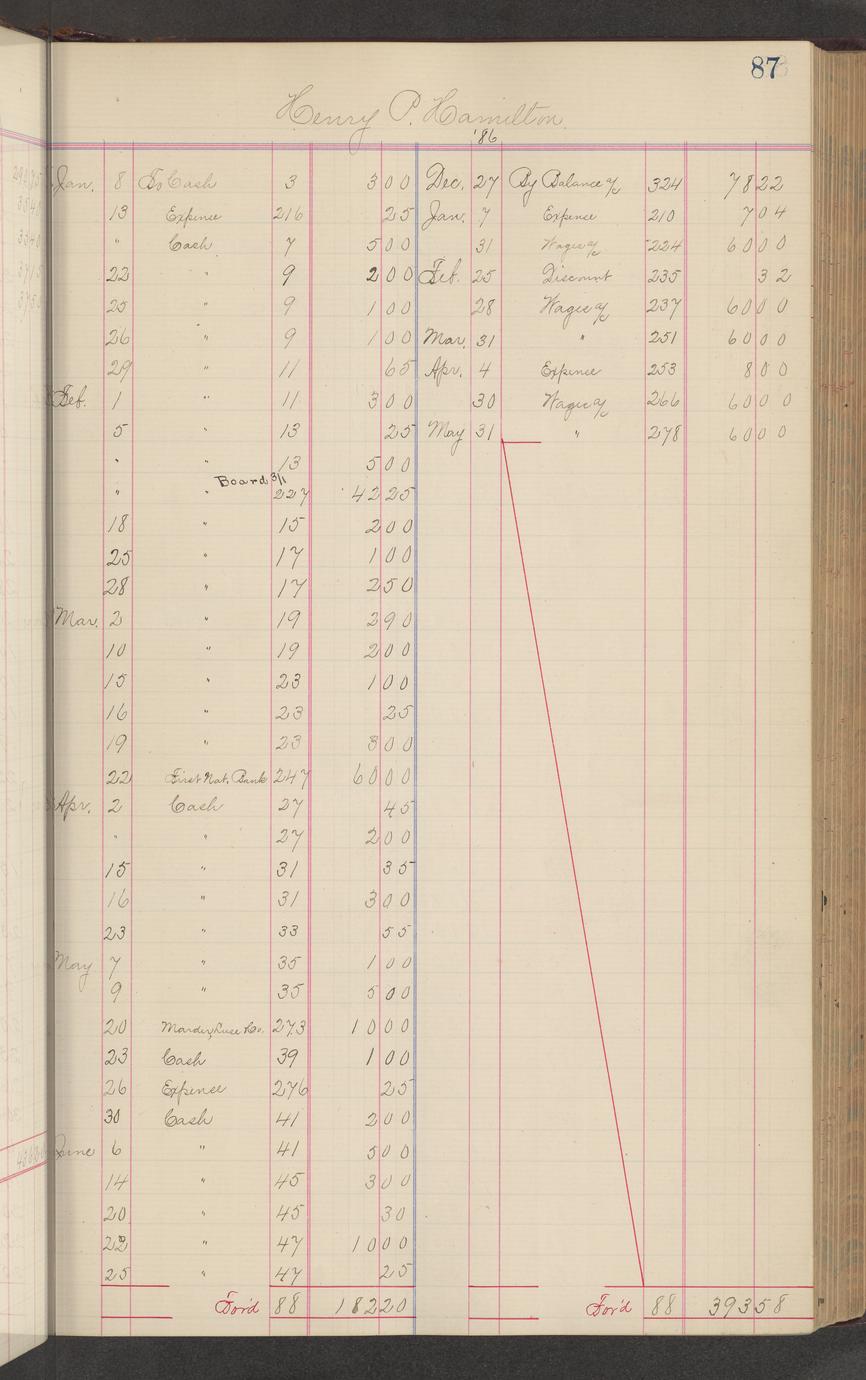 87
Henry P. Hamilton
'86
Jan. 8 To Cash 3 3 00 Dec. 27 By Balance a/c 324 78 22
13 Expense 216 25 Jan. 7 Expense 210 7 04
" Cash 7 5 00 31 Wages a/c 224 60 00
22 " 9 2 00 Feb. 25 Discount 235 32
25 " 9 1 00 28 Wages a/c 237 60 00
26 " 9 1 00 Mar. 31 " 251 60 00
29 " 11 65 Apr. 4 Expense 253 8 00
Feb. 1 " 11 3 00 30 Wages a/c 266 60 00
5 " 13 25 May 31 " 278 60 00
" " 13 5 00
" " Board 3/1 227 42 25
18 " 15 2 00
25 " 17 1 00
28 " 17 2 50
Mar. 2 " 19 2 90
10 " 19 2 00
15 " 23 1 00
16 " 23 25
19 " 23 3 00
22 First Nat. Bank 247 60 00
Apr. 2 Cash 27 45
" " 27 2 00
15 " 31 35
16 " 31 3 00
23 " 33 55
May 7 " 35 1 00
9 " 35 5 00
20 Marder, Luse & Co. 273 10 00
23 Cash 39 1 00
26 Expense 276 25
30 Cash 41 2 00
June 6 " 41 5 00
14 " 45 3 00
20 " 45 30
22 " 47 10 00
25 " 47 25
For'd 88 182 20 For'd 88 393 58